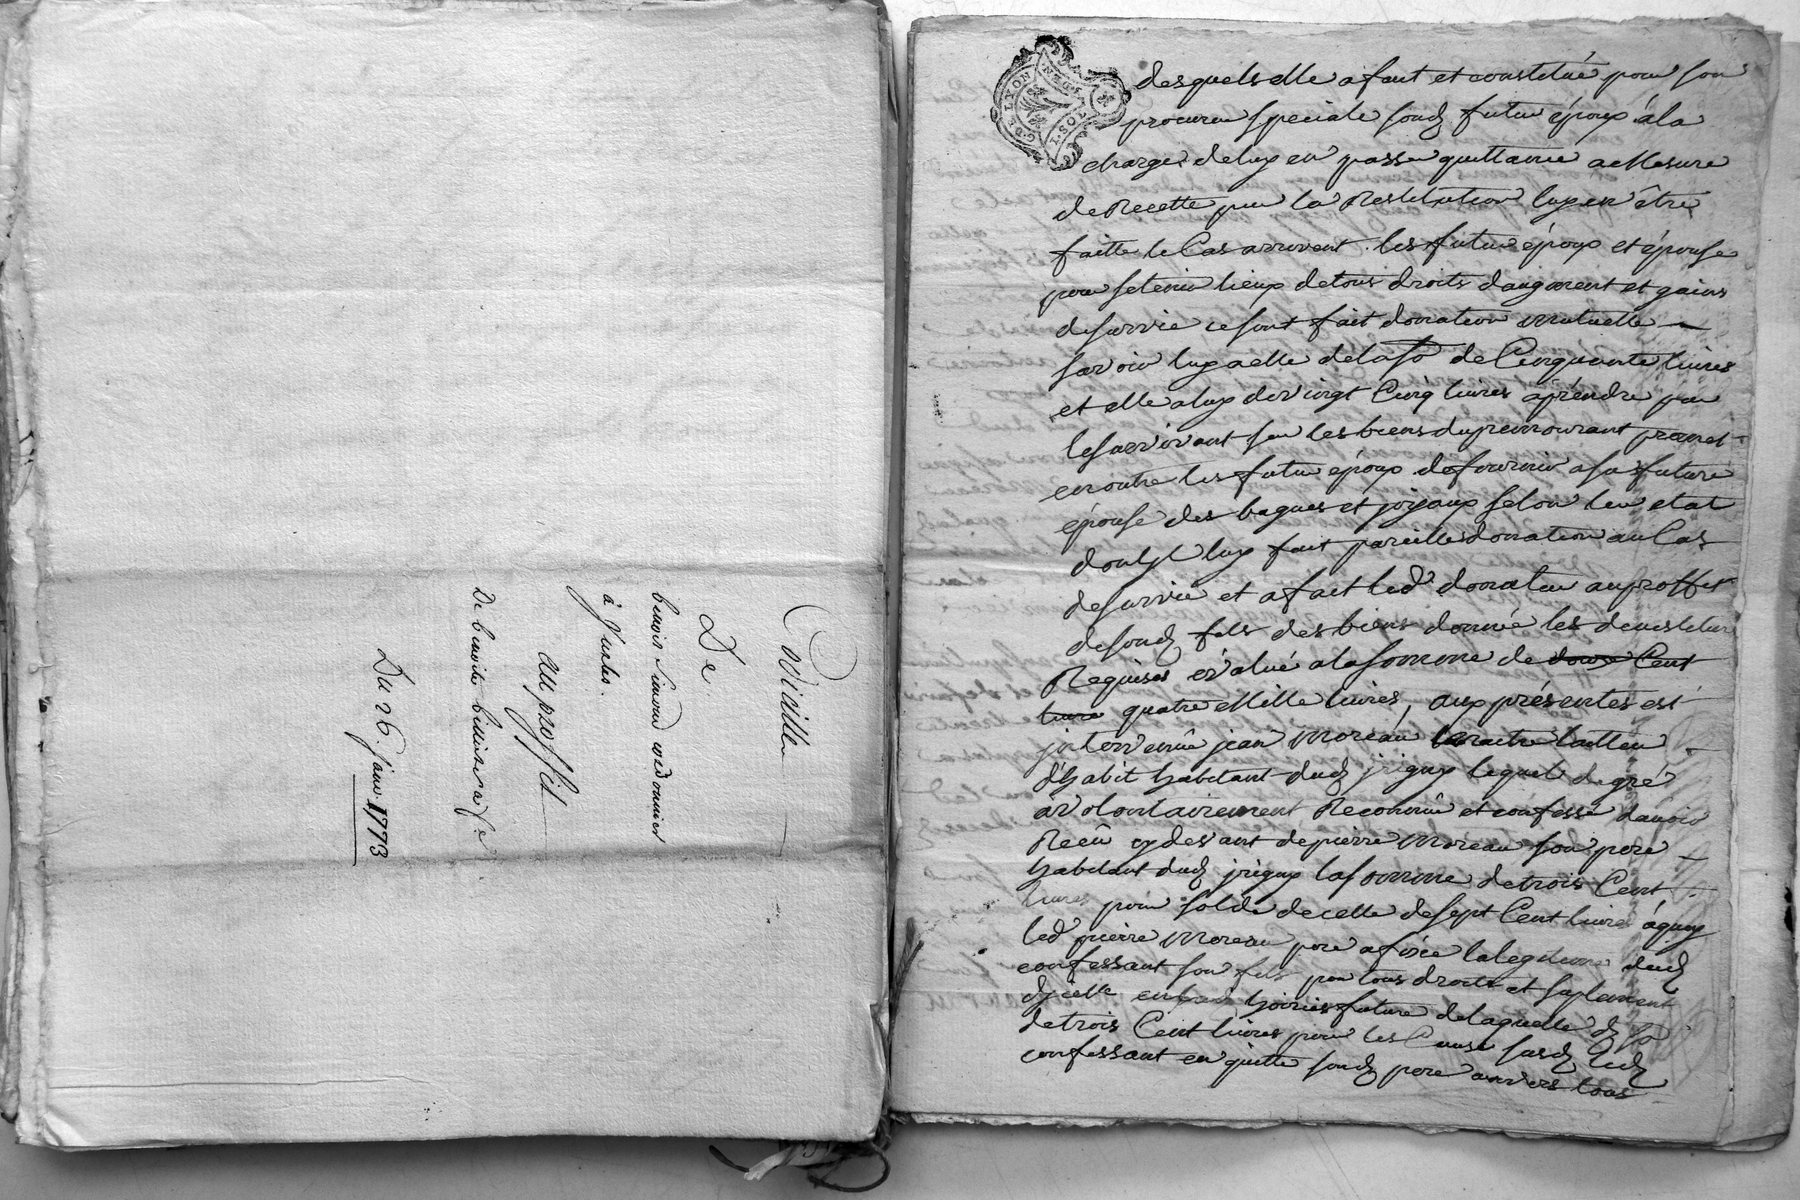 De
benoit Simon cordonnier
à Jarlos.
au proffit
De benoitte
Du 26. janv. 1773
G. DE LYON
1. SOL. 8 DEN
desquels elle a fait et constitué pour son
procureur speciale sond futur époux à la
charge de luy en passer quittance a Mesure
de Recette pour la Restitution luy en être
faitte le Cas arrivent. les futur époux et épouse
pour se tenir lieux de tous droits d'augment et gains
de survie ce sont fait donation mutuelle
savoir luy a elle de la so de Cinquante livres
et elle a luy de vingt Cinq livres a prendre par
le survivant sur les biens du premourant promet
en outre les futur époux de fournir a sa future
épouse des bagues et joyaux selon leur etat
dont luy fait pareille donation au Cas
de survie et a fait led donateur au proffit
de sond fils des biens donné les
Requises évalué a la somme de douze Cent
livre quatre Mille livres, aux présentes est
intervenû jean Moreau Maitre tailleur
d'habit habitant dud jrigny lequel de gré
a volontairement Reconnû et confessé d'avoir
Recû cy devant de pierre Moreau son pere
habitant dud jrigny la somme de trois Cent
livres pour solde de celle de sept Cent livres àquoy
led pierre Moreau pere a fixée la legitime dud
confessant son fils pour tous droits et suplement
d'jcelle en hoirie future de laquelle d so
de trois Cent livres pour les Cause susd led
confessant en quitte sond pere anvers tous